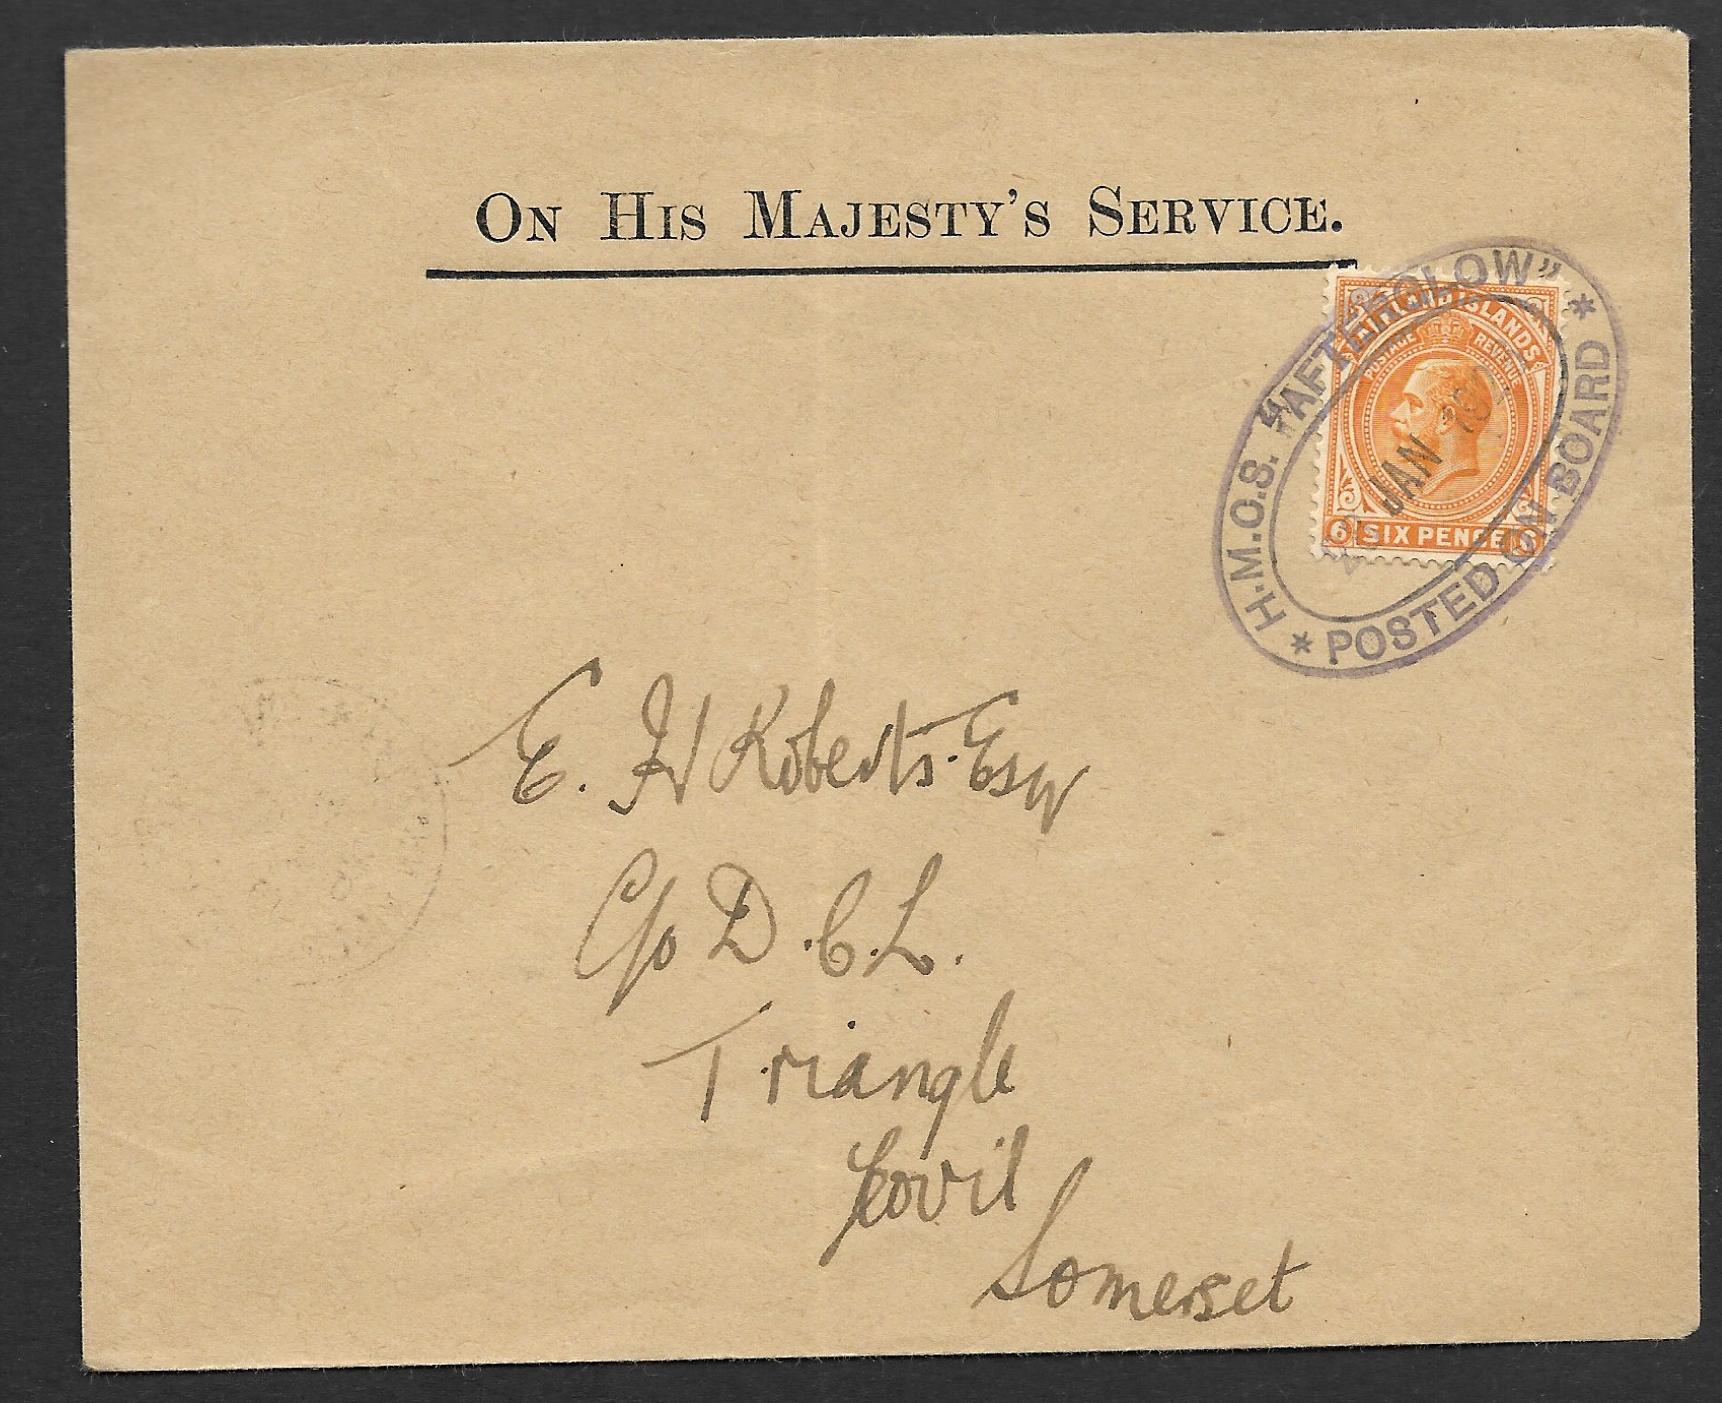 ON HIS MAJESTY'S SERVICE.
H.M.O.S. "AFTERGLOW"
* POSTED ON BOARD *
JAN
FALKLAND ISLANDS
POSTAGE REVENUE
6 SIX PENCE 6
E. H Roberts. Esq
C/o D.C.L.
Triangle
Yeovil
Somerset